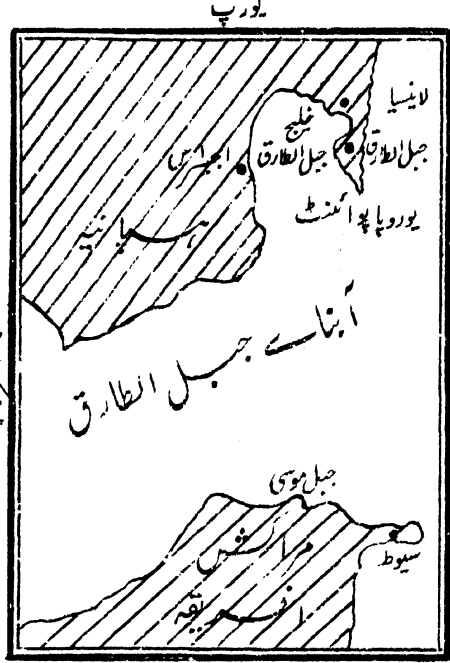 یورپ
لاینسیا
خلیج
جبل الطارق
جبل الطارق
الجیراس
یوروپا پوائنٹ
ہسپانیہ
آبنائے جبل الطارق
جبل موسیٰ
مراکش
سیوط
افریقہ